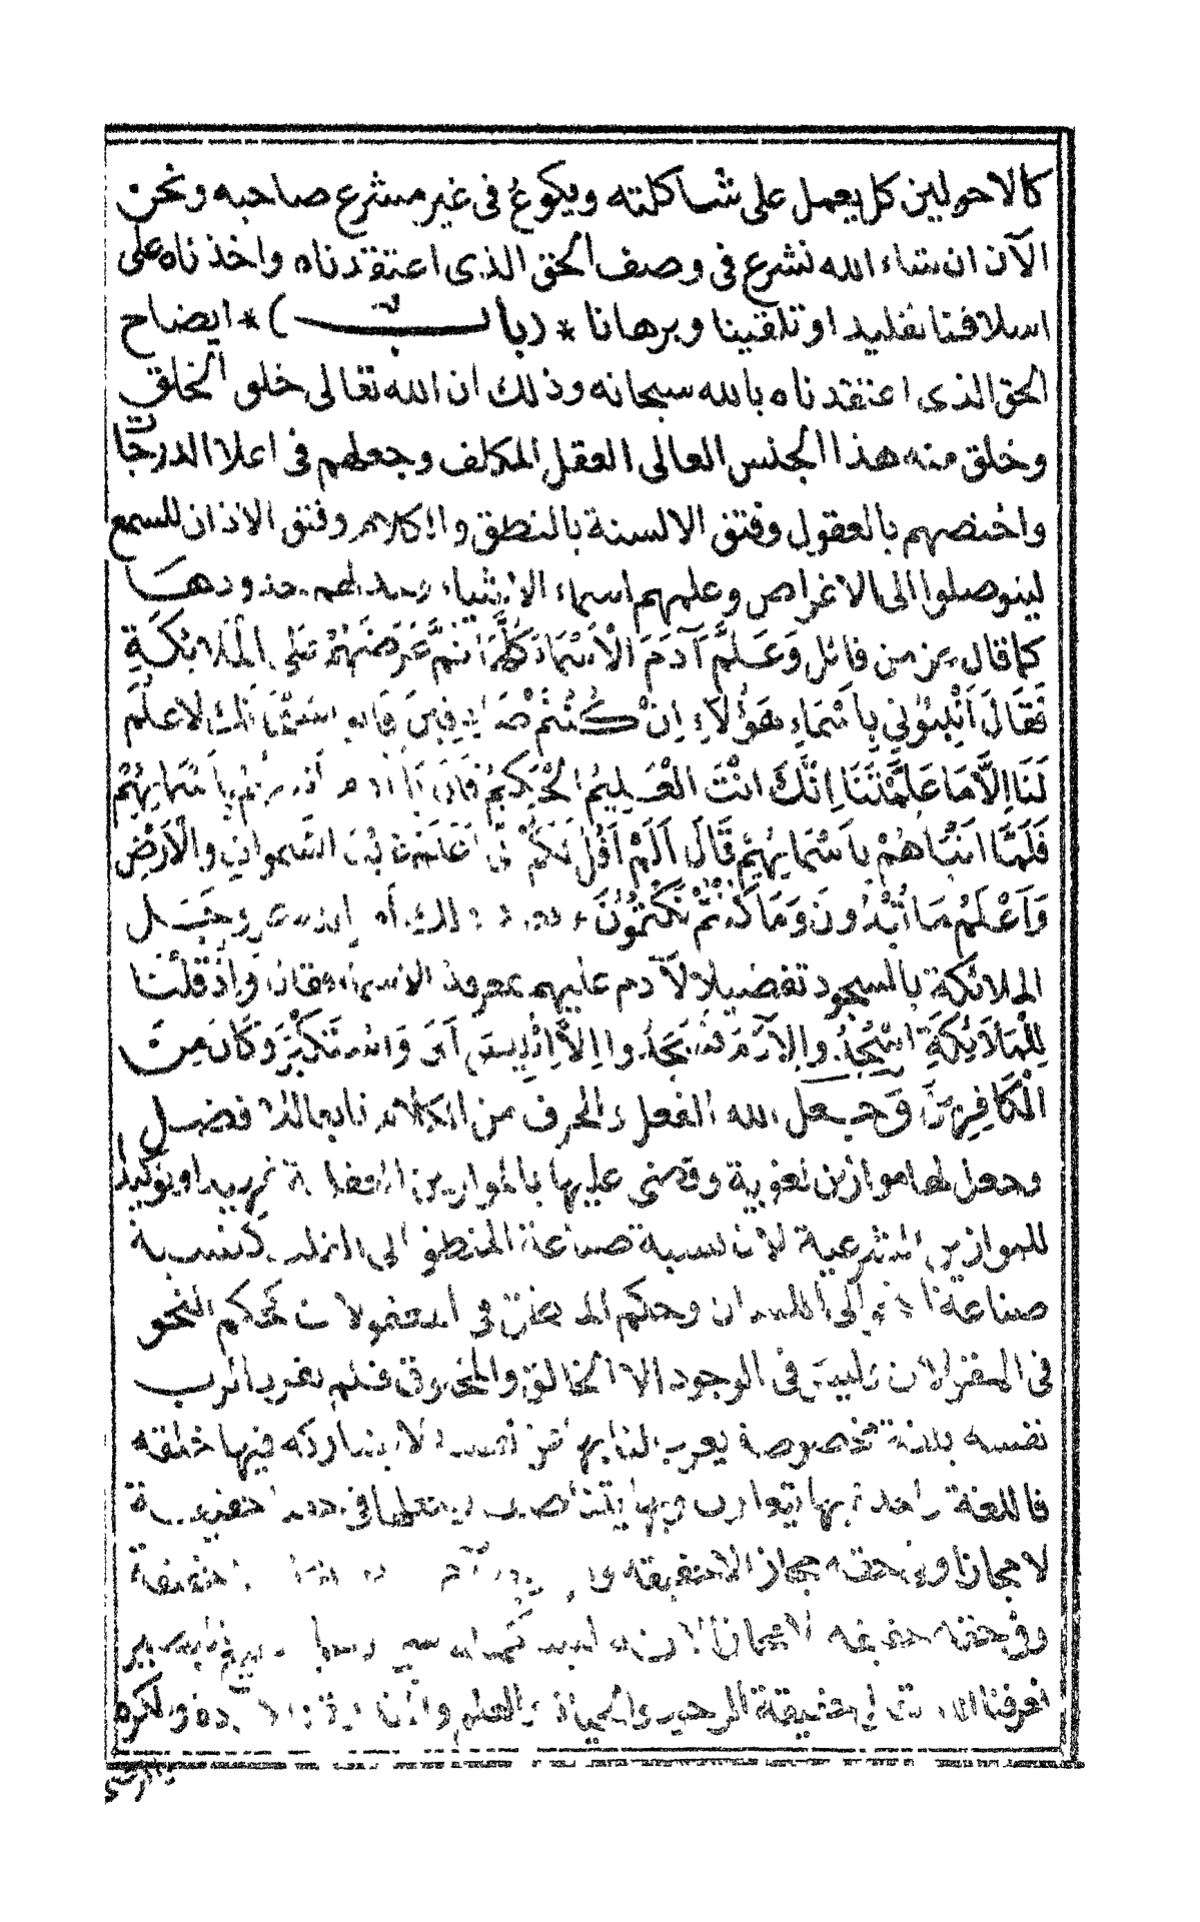 كالاحولين كل يعمل على شاكلته ويكوع فى غير مشرع صاحبه ونحن
الآن ان شاء الله نشرع فى وصف الحق الذى اعتقدناه واخذناه على
اسلافنا تقليدا وتلقينا وبرهانا * (باب) * ايضاح
الحق الذى اعتقدناه بالله سبحانه وذلك ان الله تعالى خلق الخلق
وخلق منه هذا الجنس العالى العقل المكلف وجعلهم فى اعلا الدرجات
واختصهم بالعقول وفتق الالسنة بالنطق والكلام وفتق الاذان للسمع
ليتوصلوا الى الاغراض وعلمهم اسماء الاشياء وحد لهم حدودها
كما قال عز من قائل وَعَلَّمَ آدَمَ الْاَسْمَاءَ كُلَّهَا ثُمَّ عَرَضَهُمْ عَلَى الْمَلَائِكَةِ
فَقَالَ اَنْبِئُوْنِي بِاَسْمَاءِ هَؤُلَاءِ اِنْ كُنْتُمْ صَادِقِينَ قَالُوا سُبْحَانَكَ لَا عِلْمَ
لَنَا اِلَّا مَا عَلَّمْتَنَا اِنَّكَ اَنْتَ الْعَلِيمُ الْحَكِيمُ قَالَ يَا آدَمُ اَنْبِئْهُمْ بِاَسْمَائِهِمْ
فَلَمَّا اَنْبَأَهُمْ بِاَسْمَائِهِمْ قَالَ اَلَمْ اَقُلْ لَكُمْ اِنِّي اَعْلَمُ غَيْبَ السَّمَوَاتِ وَالْاَرْضِ
وَاَعْلَمُ مَا تُبْدُونَ وَمَا كُنْتُمْ تَكْتُمُونَ ذلك امر الله عز وجل
الملائكة بالسجود تفضيلا لآدم عليهم بمعرفة الاسماء فقال وَاِذْ قُلْنَا
لِلْمَلَائِكَةِ اسْجُدُوا لِآدَمَ فَسَجَدُوا اِلَّا اِبْلِيسَ اَبَى وَاسْتَكْبَرَ وَكَانَ مِنَ
الْكَافِرِينَ وجعل الله الفعل والحرف من الكلام تابعا للا فضل
وجعل لها موازين لغوية وقضى عليها بالموازين العقلية تمهيدا وتوكيدا
للموازين الشرعية لان نسبة صناعة المنطق الى العقل كنسبة
صناعة النحو الى اللسان وحكم المنطق فى المعقولات كحكم النحو
فى المقولات وليس فى الوجود الا الخالق والمخلوق فلم يفرد الرب
نفسه بلغة مخصوصة يعرب لنا بها عن نفسه لا يشاركه فيها خلقه
فاللغة واحدة بها يتعارف وبها يتخاطب يجعلها فى حقيقة
لا مجازا وفى حقه مجازا لا حقيقة حقيقة
وفى حقه حقيقة لا مجازا لان
فعرفنا الله تعالى حقيقة الرحمة والحياة والعلم ولكره